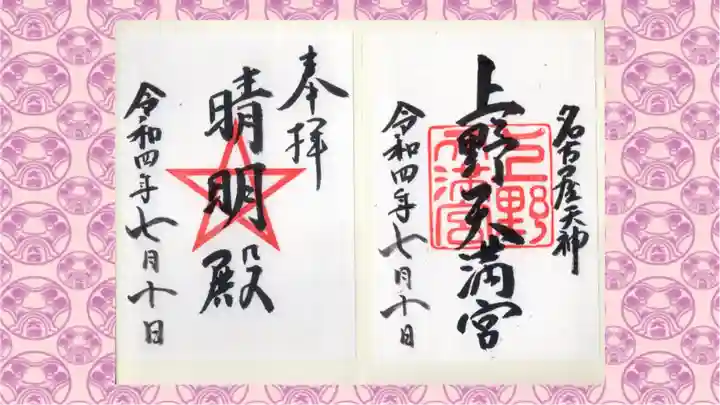 奉拝
晴明殿
令和四年七月十日
名古屋天神
上野天満宮
上野
天満宮
令和四年七月十日